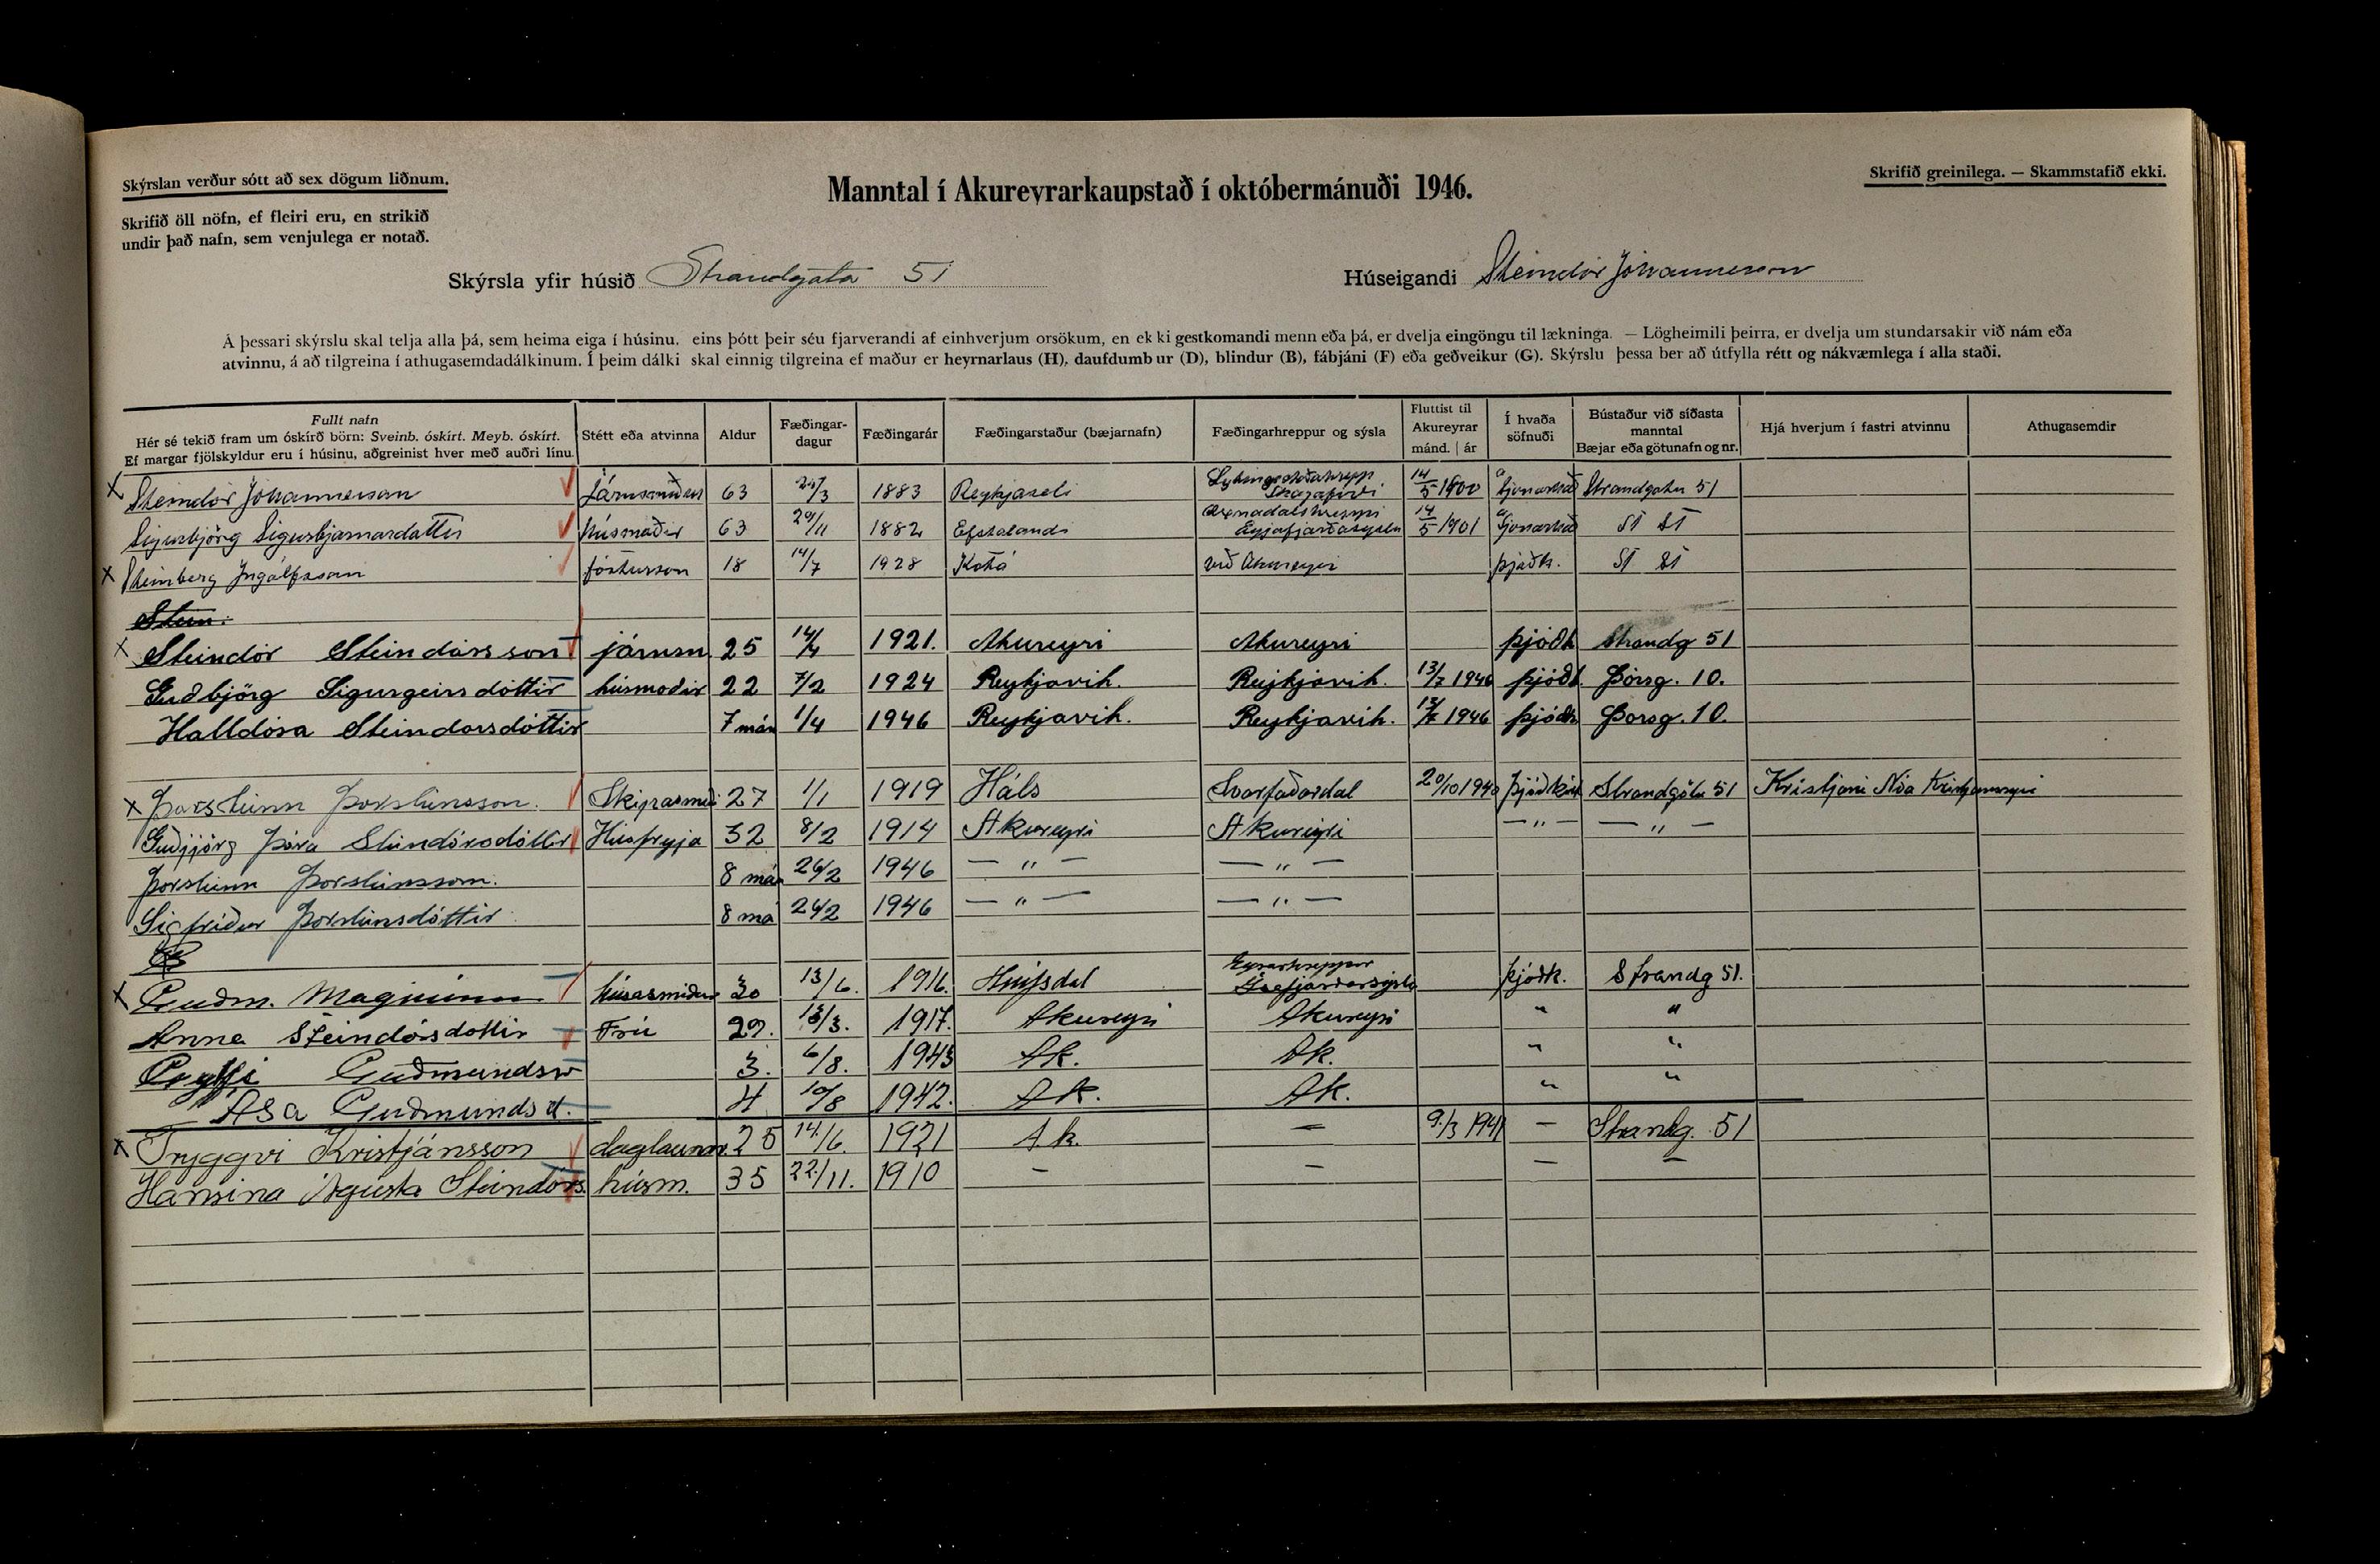 Skýrslan verður sótt að sex dögum liðnum.
Skrifið öll nöfn, ef fleiri eru, en strikið
undir það nafn, sem venjulega er notað.
Manntal í Akureyrarkaupstað í októbermánuði 1946.
Skrifið greinilega. — Skammstafið ekki.
Skýrsla yfir húsið Strandgata 51
Húseigandi Steindór Jóhannesson
Á þessari skýrslu skal telja alla þá, sem heima eiga í húsinu, eins þótt þeir séu fjarverandi af einhverjum orsökum, en ekki gestkomandi menn eða þá, er dvelja eingöngu til lækninga. — Lögheimili þeirra, er dvelja um stundarsakir við nám eða
atvinnu, á að tilgreina í athugasemdadálkinum. Í þeim dálki skal einnig tilgreina ef maður er heyrnarlaus (H), daufdumbur (D), blindur (B), fábjáni (F) eða geðveikur (G). Skýrslu þessa ber að útfylla rétt og nákvæmlega í alla staði.
Fullt nafn
Hér sé tekið fram um óskírð börn: Sveinb. óskírt. Meyb. óskírt.
Ef margar fjölskyldur eru í húsinu, aðgreinist hver með auðri línu.
Stétt eða atvinna
Aldur
Fæðingar-
dagur
Fæðingarár
Fæðingarstaður (bæjarnafn)
Fæðingarhreppur og sýsla
Fluttist til
Akureyrar
mánd. | ár
Í hvaða
söfnuði
Bústaður við síðasta
manntal
Bæjar eða götunafn og nr.
Hjá hverjum í fastri atvinnu
Athugasemdir
x Steindór Jóhannesson járnsmiður 63 1883 Reykjaseli Skagafirði 14/5 1900 Strandgata 51
Sigurbjörg Sigurbjarnardóttir húsmóðir 63 29/11 1882 Efstalandi Öxnadalshreppi Eyjafjarðasýslu 14/5 1901 St 51
x Steinberg Ingólfsson fóstursson 18 14/7 1928 Kotá við Akureyri þjóðk. St 51
Stein:
x Steindór Steindórsson járnsm. 25 14/4 1921. Akureyri Akureyri þjóðk Strandg 51
Guðbjörg Sigurgeirsdóttir húsmóðir 22 7/2 1924 Reykjavík. Reykjavík. 13/7 1946 þjóðk. Þórsg. 10.
Halldóra Steindórsdóttir 7 mán 1/4 1946 Reykjavík. Reykjavík. 1946 þjóðk Þorsg. 10.
x Þorsteinn Þorsteinsson. Skipasmið 27 1/1 1919 Háls Svarfaðardal 20/10 1940 Þjóðkirk Strandgötu 51 Kristjáni Nóa Kristjánssyni
Guðbjörg Þóra Steindórsdóttir Húsfreyja 32 8/2 1914 Akureyri Akureyri — " — — " —
Þorsteinn Þorsteinsson. 8 mán 26/2 1946 — " — — " —
Sigfríður Þorsteinsdóttir 8 má 26/2 1946 — " — — " —
x Guðm. Magnússon húsasmiður 30 13/6. 1916. Hnífsdal Eyrarhreppur Ísafjarðarsýsla þjóðk. Strandg 51.
Anna Steindórsdottir Frú 29. 13/3. 1917. Akureyri Akureyri " "
Gylfi Guðmundss 3. 6/8. 1943 Ak. Ak. " "
Asa Guðmundsd. 4 10/8 1942. Ak. Ak. " "
x Tryggvi Kristjánsson daglaunm. 25 14/6. 1921 Ak. — 9/3 1941 — Strandg. 51
Hansína Ágústa Steindórs. húsm. 35 22/11. 1910 — — — —